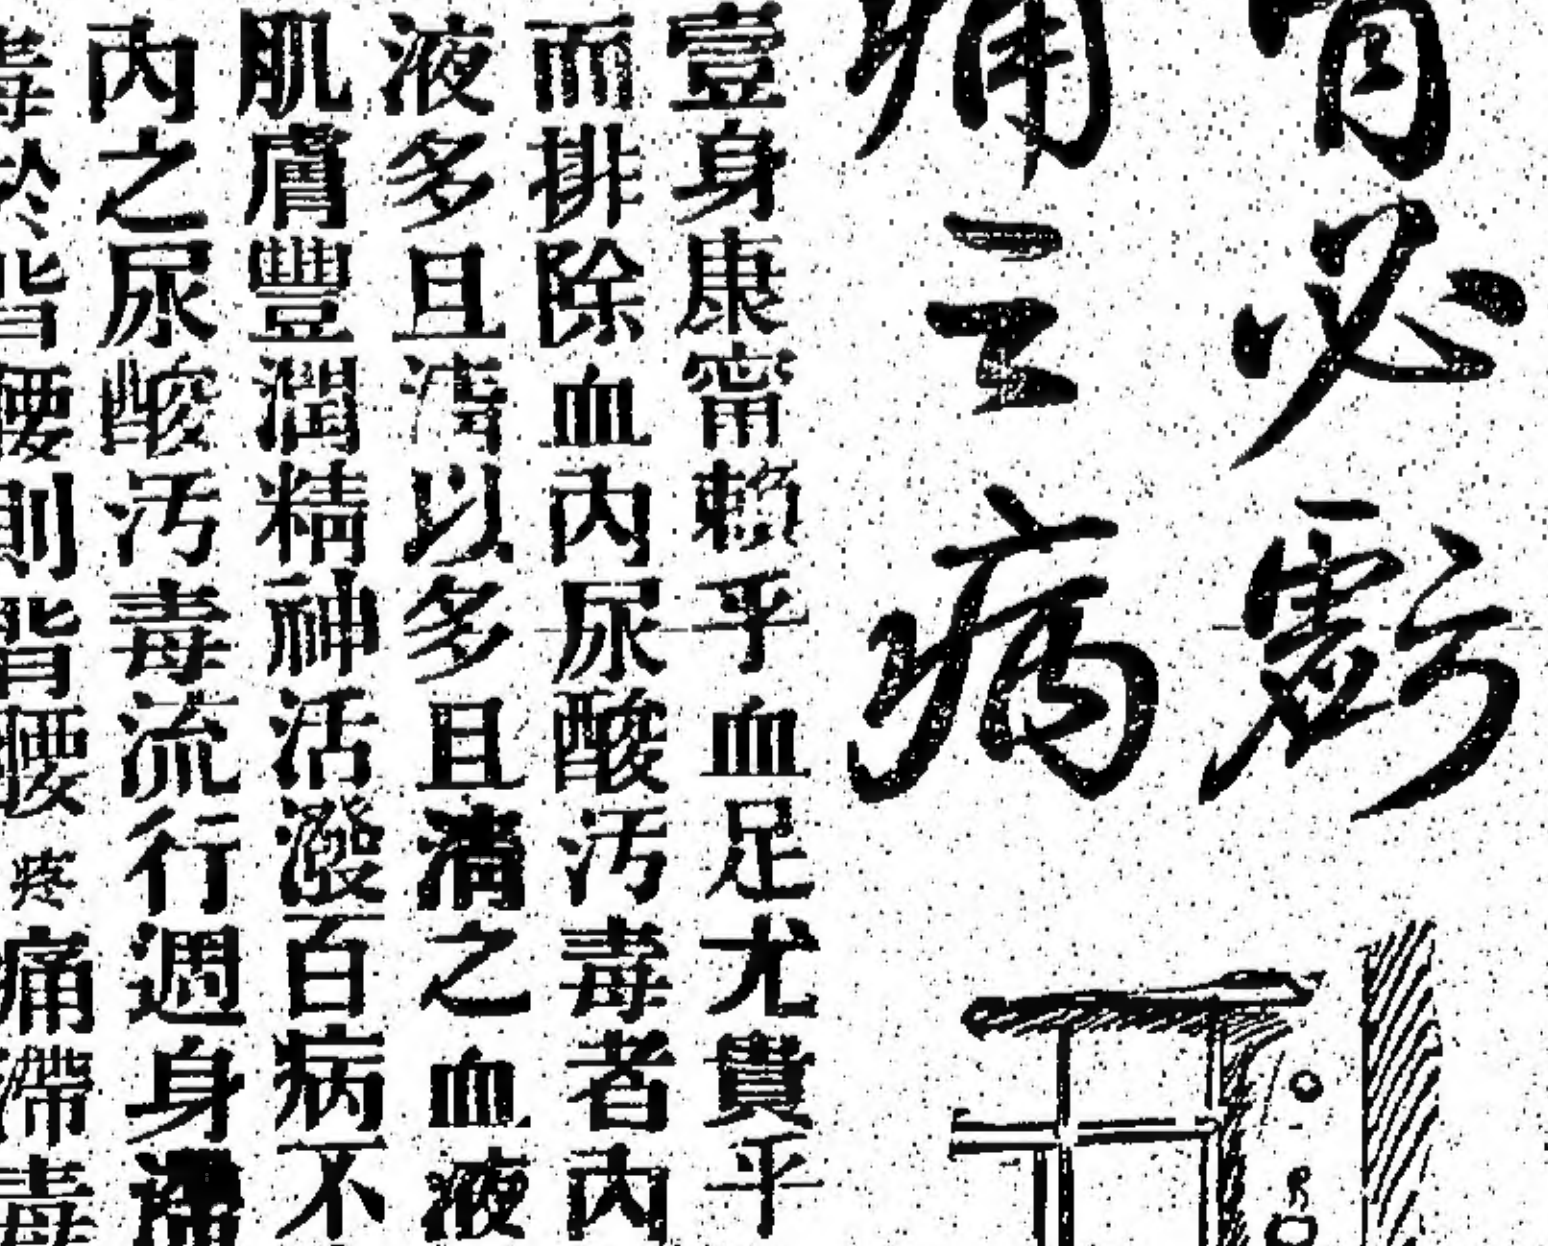 腎必虧
痛云病
壹身康甯賴乎血足尤貴乎
而排除血內尿酸污毒者內
液多且清以多且清之血液
肌膚豐潤精神活潑百病不
內之尿酸污毒流行週身滯
毒於背腰則背腰疼痛滯毒